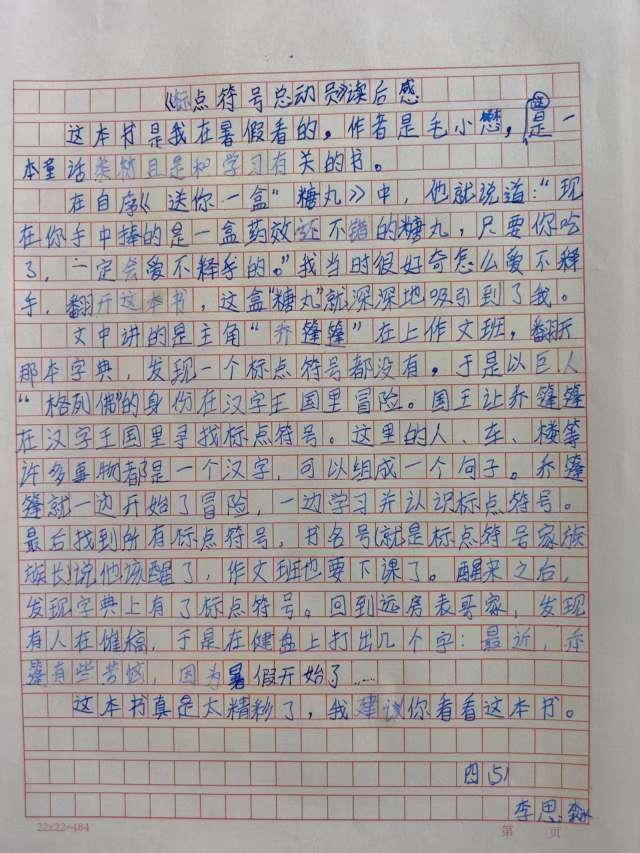 《标点符号总动员》读后感
这本书是我在暑假看的，作者是毛小懋，这是一
本童话类材且是和学习有关的书。
在自序《送你一盒“糖丸》中，他就说道：“现
在你手中捧的是一盒药效还不错的糖丸，只要你吃
了，一定会爱不释手的。”我当时很好奇怎么爱不释
手，翻开这本书，这盒“糖丸”就深深地吸引到了我。
文中讲的是主角“乔篷篷”在上作文班，翻开
那本字典，发现一个标点符号都没有，于是以巨人
“格列佛”的身份在汉字王国里冒险。国王让乔篷篷
在汉字王国里寻找标点符号。这里的人、车、楼等
许多事物都是一个汉字，可以组成一个句子。乔篷
篷就一边开始了冒险，一边学习并认识标点符号。
最后找到所有标点符号，书名号(就是标点符号家族
族长)说他该醒了，作文班也要下课了。醒来之后，
发现字典上有了标点符号。回到远房表哥家，发现
有人在催稿，于是在健盘上打出几个字：最近，乔
篷有些苦恼，因为暑假开始了……
这本书真是太精秒了，我建议你看看这本书。
四(5)
李思
22x22=484
第 页